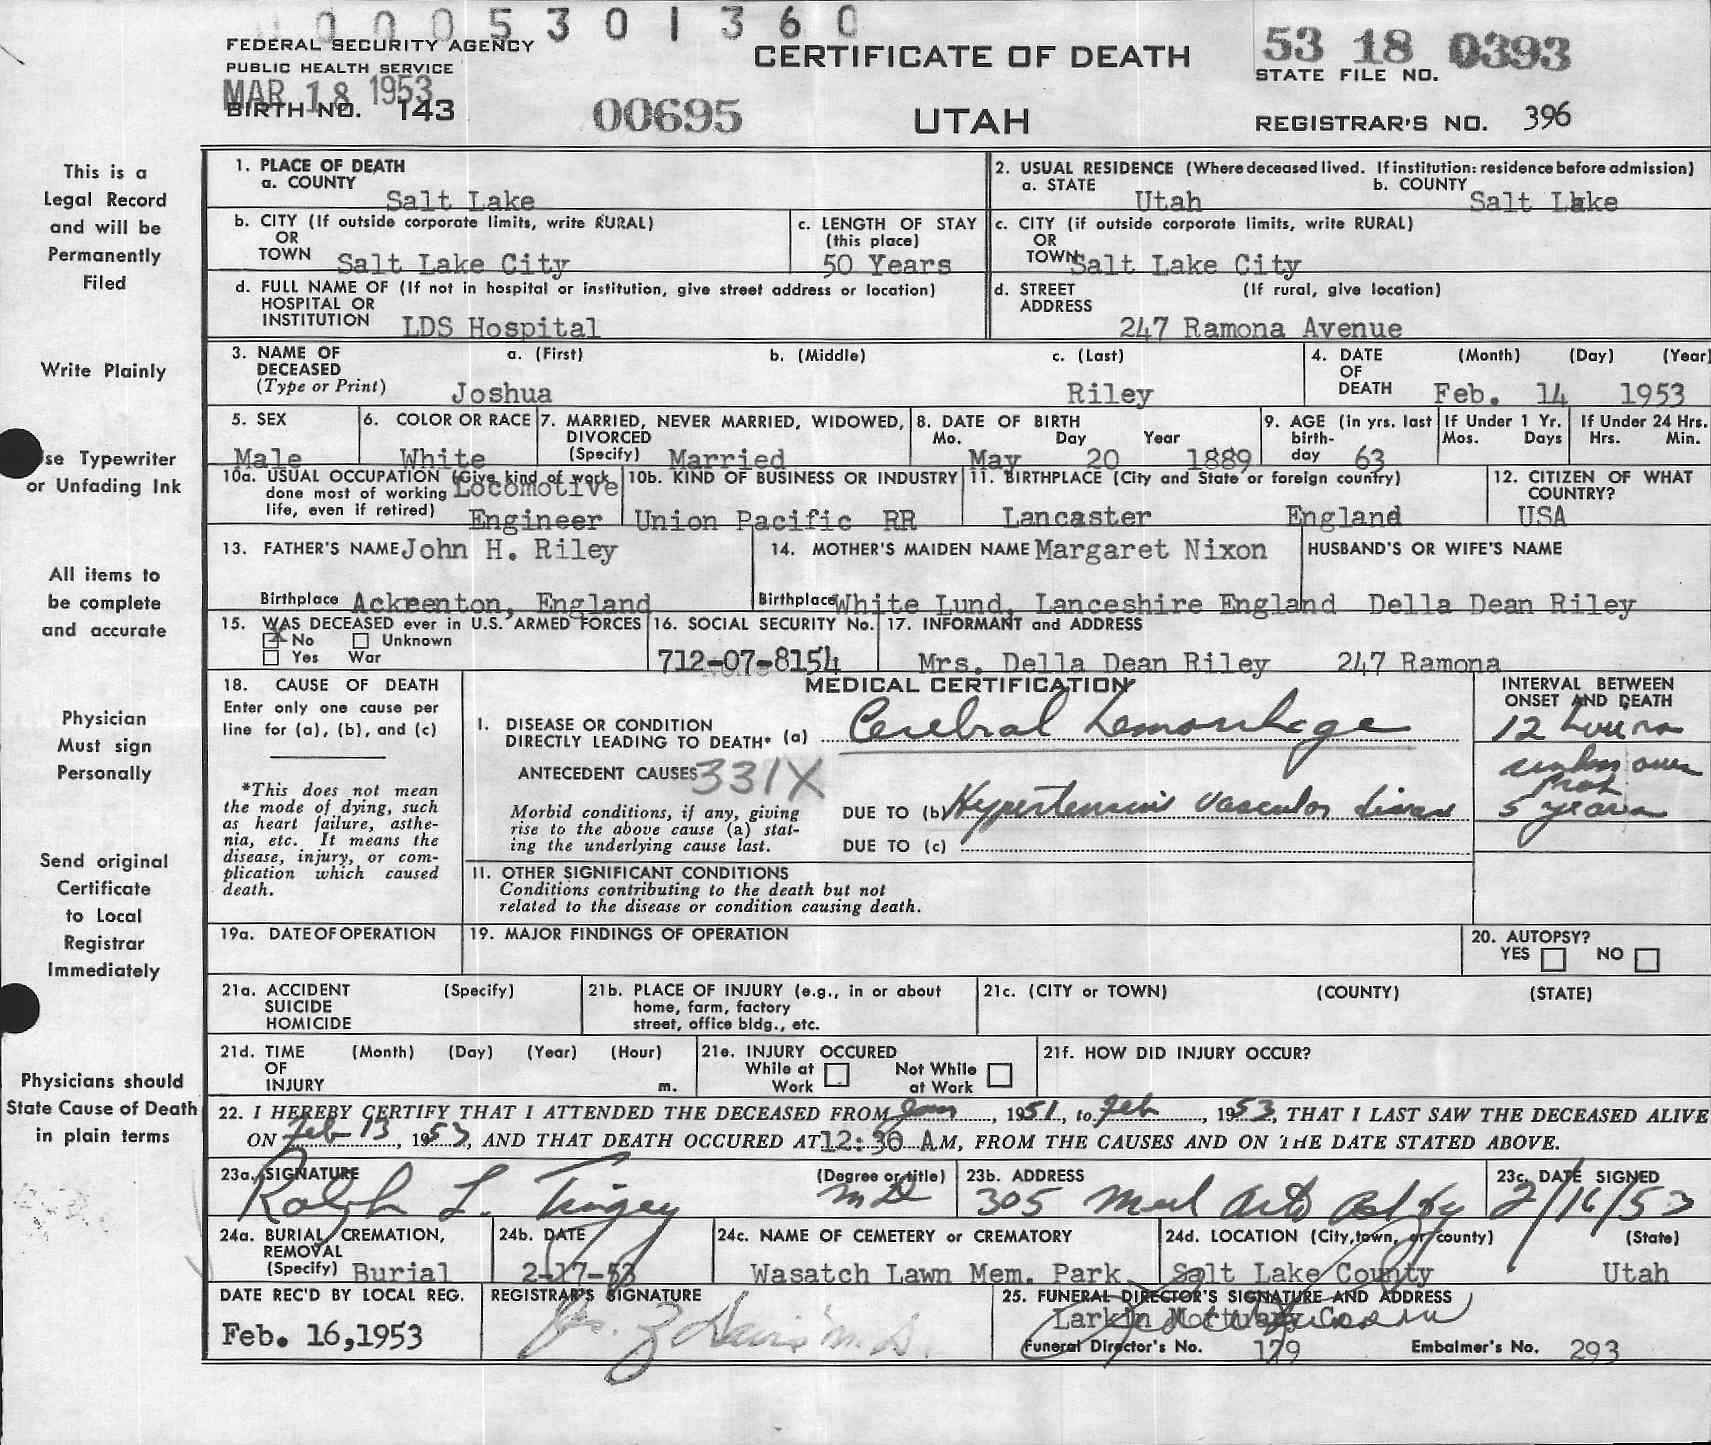 0005301360
FEDERAL SECURITY AGENCY
PUBLIC HEALTH SERVICE
MAR 18 1953
BIRTH NO. 143
00695
CERTIFICATE OF DEATH
UTAH
53 18 0393
STATE FILE NO.
REGISTRAR'S NO. 396
This is a
Legal Record
and will be
Permanently
Filed
Write Plainly
se Typewriter
or Unfading Ink
All items to
be complete
and accurate
Physician
Must sign
Personally
Send original
Certificate
to Local
Registrar
Immediately
Physicians should
State Cause of Death
in plain terms
1. PLACE OF DEATH
a. COUNTY Salt Lake
2. USUAL RESIDENCE (Where deceased lived. If institution: residence before admission)
a. STATE Utah b. COUNTY Salt Lake
b. CITY (If outside corporate limits, write RURAL)
OR
TOWN Salt Lake City
c. LENGTH OF STAY
(this place)
50 Years
c. CITY (if outside corporate limits, write RURAL)
OR
TOWN Salt Lake City
d. FULL NAME OF (If not in hospital or institution, give street address or location)
HOSPITAL OR
INSTITUTION LDS Hospital
d. STREET (If rural, give location)
ADDRESS
247 Ramona Avenue
3. NAME OF DECEASED a. (First) b. (Middle) c. (Last)
(Type or Print) Joshua Riley
4. DATE OF DEATH (Month) (Day) (Year)
Feb. 14 1953
5. SEX
Male
6. COLOR OR RACE
White
7. MARRIED, NEVER MARRIED, WIDOWED,
DIVORCED
(Specify) Married
8. DATE OF BIRTH
Mo. Day Year
May 20 1889
9. AGE (in yrs. last
birth-
day 63
If Under 1 Yr.
Mos. Days
If Under 24 Hrs.
Hrs. Min.
10a. USUAL OCCUPATION (Give kind of work
done most of working
life, even if retired) Locomotive
Engineer
10b. KIND OF BUSINESS OR INDUSTRY
Union Pacific RR
11. BIRTHPLACE (City and State or foreign country)
Lancaster England
12. CITIZEN OF WHAT
COUNTRY?
USA
13. FATHER'S NAME John H. Riley
Birthplace Ackreenton, England
14. MOTHER'S MAIDEN NAME Margaret Nixon
Birthplace White Lund, Lanceshire England
HUSBAND'S OR WIFE'S NAME
Della Dean Riley
15. WAS DECEASED ever in U.S. ARMED FORCES
No Unknown
Yes War
16. SOCIAL SECURITY No.
712-07-8154
17. INFORMANT and ADDRESS
Mrs. Della Dean Riley 247 Ramona
18. CAUSE OF DEATH
Enter only one cause per
line for (a), (b), and (c)
*This does not mean
the mode of dying, such
as heart failure, asthe-
nia, etc. It means the
disease, injury, or com-
plication which caused
death.
MEDICAL CERTIFICATION
I. DISEASE OR CONDITION
DIRECTLY LEADING TO DEATH* (a) Cerebral hemorrhage
ANTECEDENT CAUSES 331X
Morbid conditions, if any, giving
rise to the above cause (a) stat-
ing the underlying cause last.
DUE TO (b) Hypertensive vascular disease
DUE TO (c)
INTERVAL BETWEEN
ONSET AND DEATH
12 hours
unknown
5 years
II. OTHER SIGNIFICANT CONDITIONS
Conditions contributing to the death but not
related to the disease or condition causing death.
19a. DATE OF OPERATION
19. MAJOR FINDINGS OF OPERATION
20. AUTOPSY?
YES NO
21a. ACCIDENT (Specify)
SUICIDE
HOMICIDE
21b. PLACE OF INJURY (e.g., in or about
home, farm, factory
street, office bldg., etc.
21c. (CITY or TOWN) (COUNTY) (STATE)
21d. TIME (Month) (Day) (Year) (Hour)
OF
INJURY m.
21e. INJURY OCCURED
While at Work Not While at Work
21f. HOW DID INJURY OCCUR?
22. I HEREBY CERTIFY THAT I ATTENDED THE DECEASED FROM Jan, 1951, to Feb, 1953, THAT I LAST SAW THE DECEASED ALIVE
ON Feb 13, 1953, AND THAT DEATH OCCURED AT 12:30 A.M, FROM THE CAUSES AND ON THE DATE STATED ABOVE.
23a. SIGNATURE (Degree or title)
Ralph L. Tingey MD
23b. ADDRESS
305 Med Arts Bldg
23c. DATE SIGNED
2/16/53
24a. BURIAL, CREMATION,
REMOVAL
(Specify) Burial
24b. DATE
2-17-53
24c. NAME OF CEMETERY OR CREMATORY
Wasatch Lawn Mem. Park
24d. LOCATION (City, town, or county) (State)
Salt Lake County Utah
DATE REC'D BY LOCAL REG.
Feb. 16,1953
REGISTRAR'S SIGNATURE
Davis M.D.
25. FUNERAL DIRECTOR'S SIGNATURE AND ADDRESS
Larkin Mortuary Co
Funeral Director's No. 179 Embalmer's No. 293